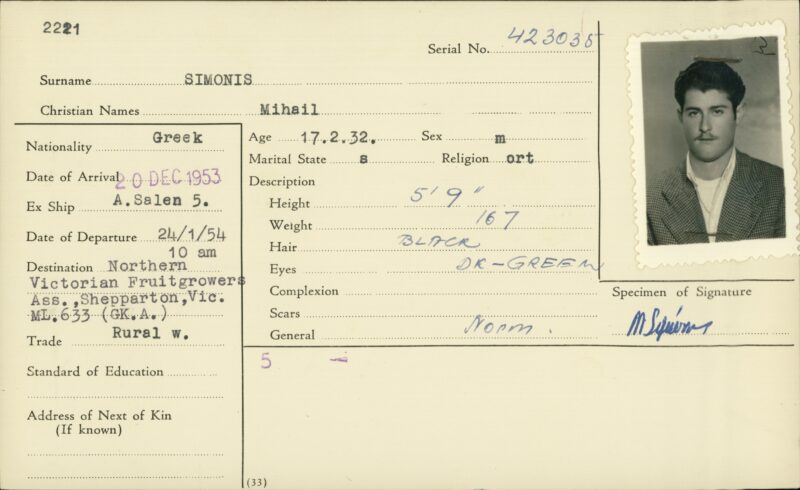 2221
Serial No. 423035
Surname SIMONIS
Christian Names Mihail
Nationality Greek
Date of Arrival 20 DEC 1953
Ex Ship A.Salen 5.
Date of Departure 24/1/54
10 am
Destination Northern
Victorian Fruitgrowers
Ass.,Shepparton,Vic.
ML.633 (GK.A.)
Trade Rural w.
Standard of Education
Address of Next of Kin
(If known)
Age 17.2.32. Sex m
Marital State s Religion ort
Description
Height 5' 9"
Weight 167
Hair BLACK
Eyes DK-GREEN
Complexion
Scars
General Norm.
5 -
(33)
Specimen of Signature